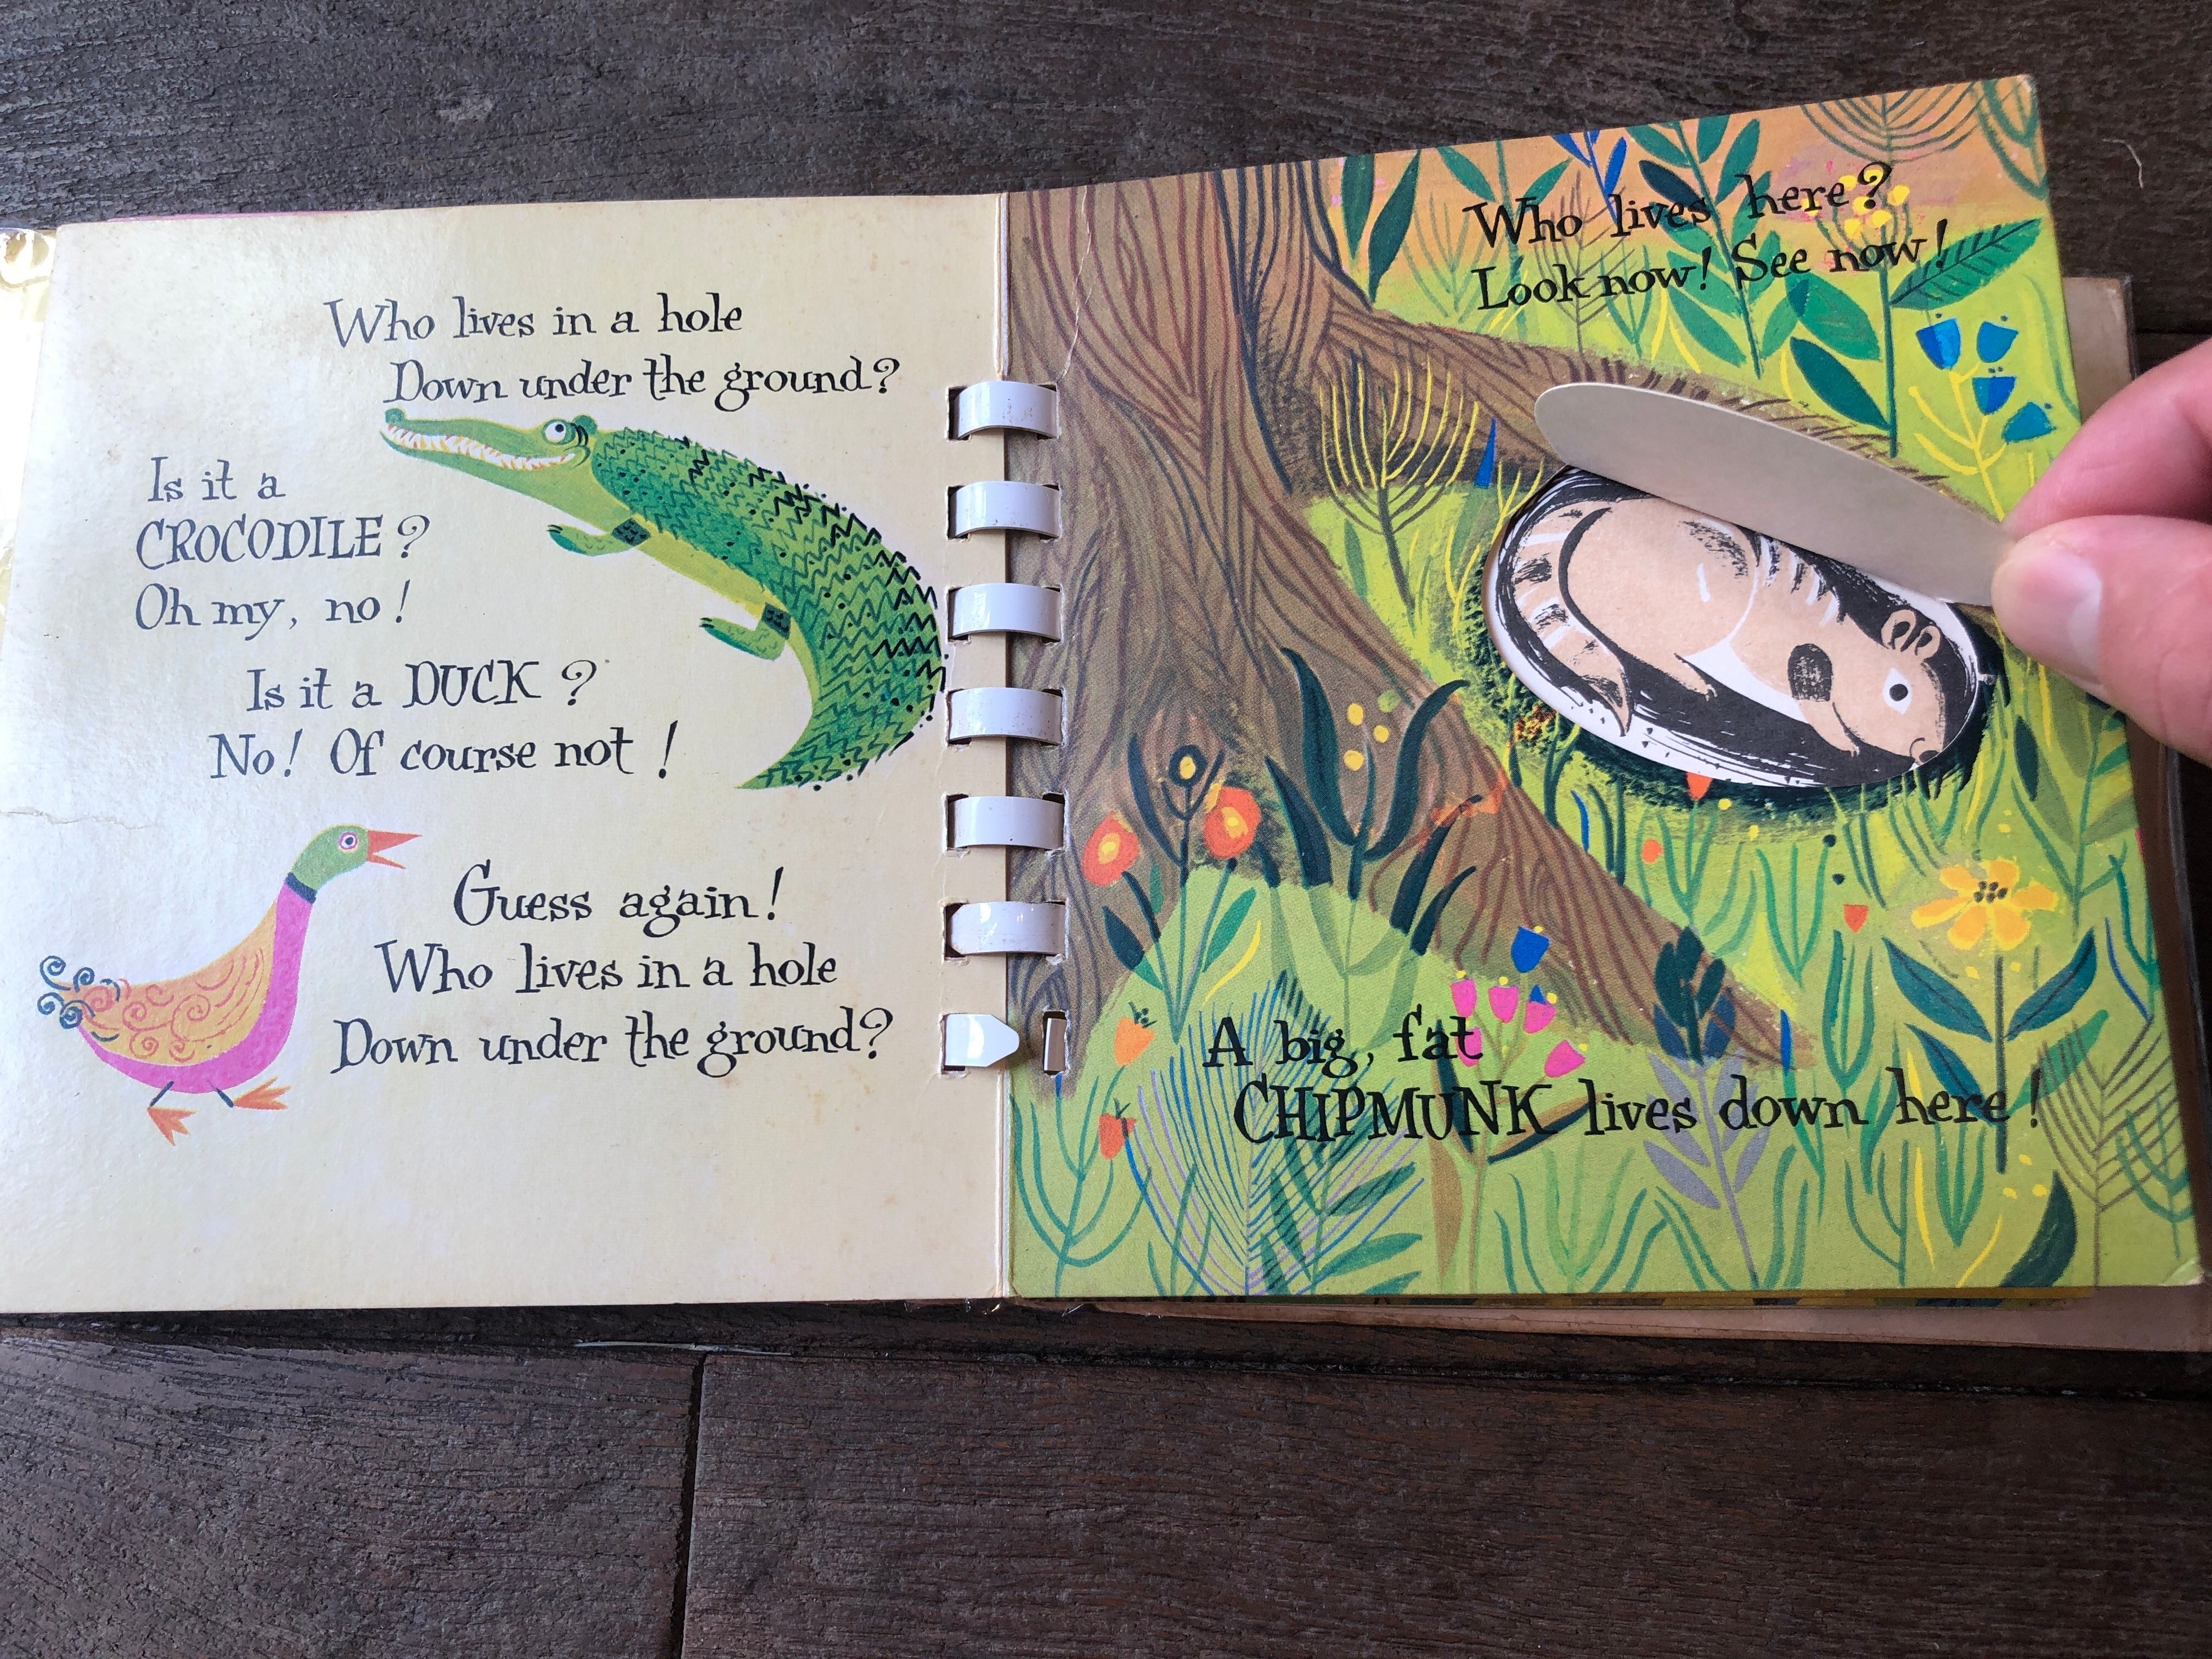 Who lives in a hole
Down under the ground?
Is it a
CROCODILE?
Oh my, no!
Is it a DUCK?
No! Of course not!
Guess again!
Who lives in a hole
Down under the ground?
Who lives here?
Look now! See now!
A big, fat
CHIPMUNK lives down here!